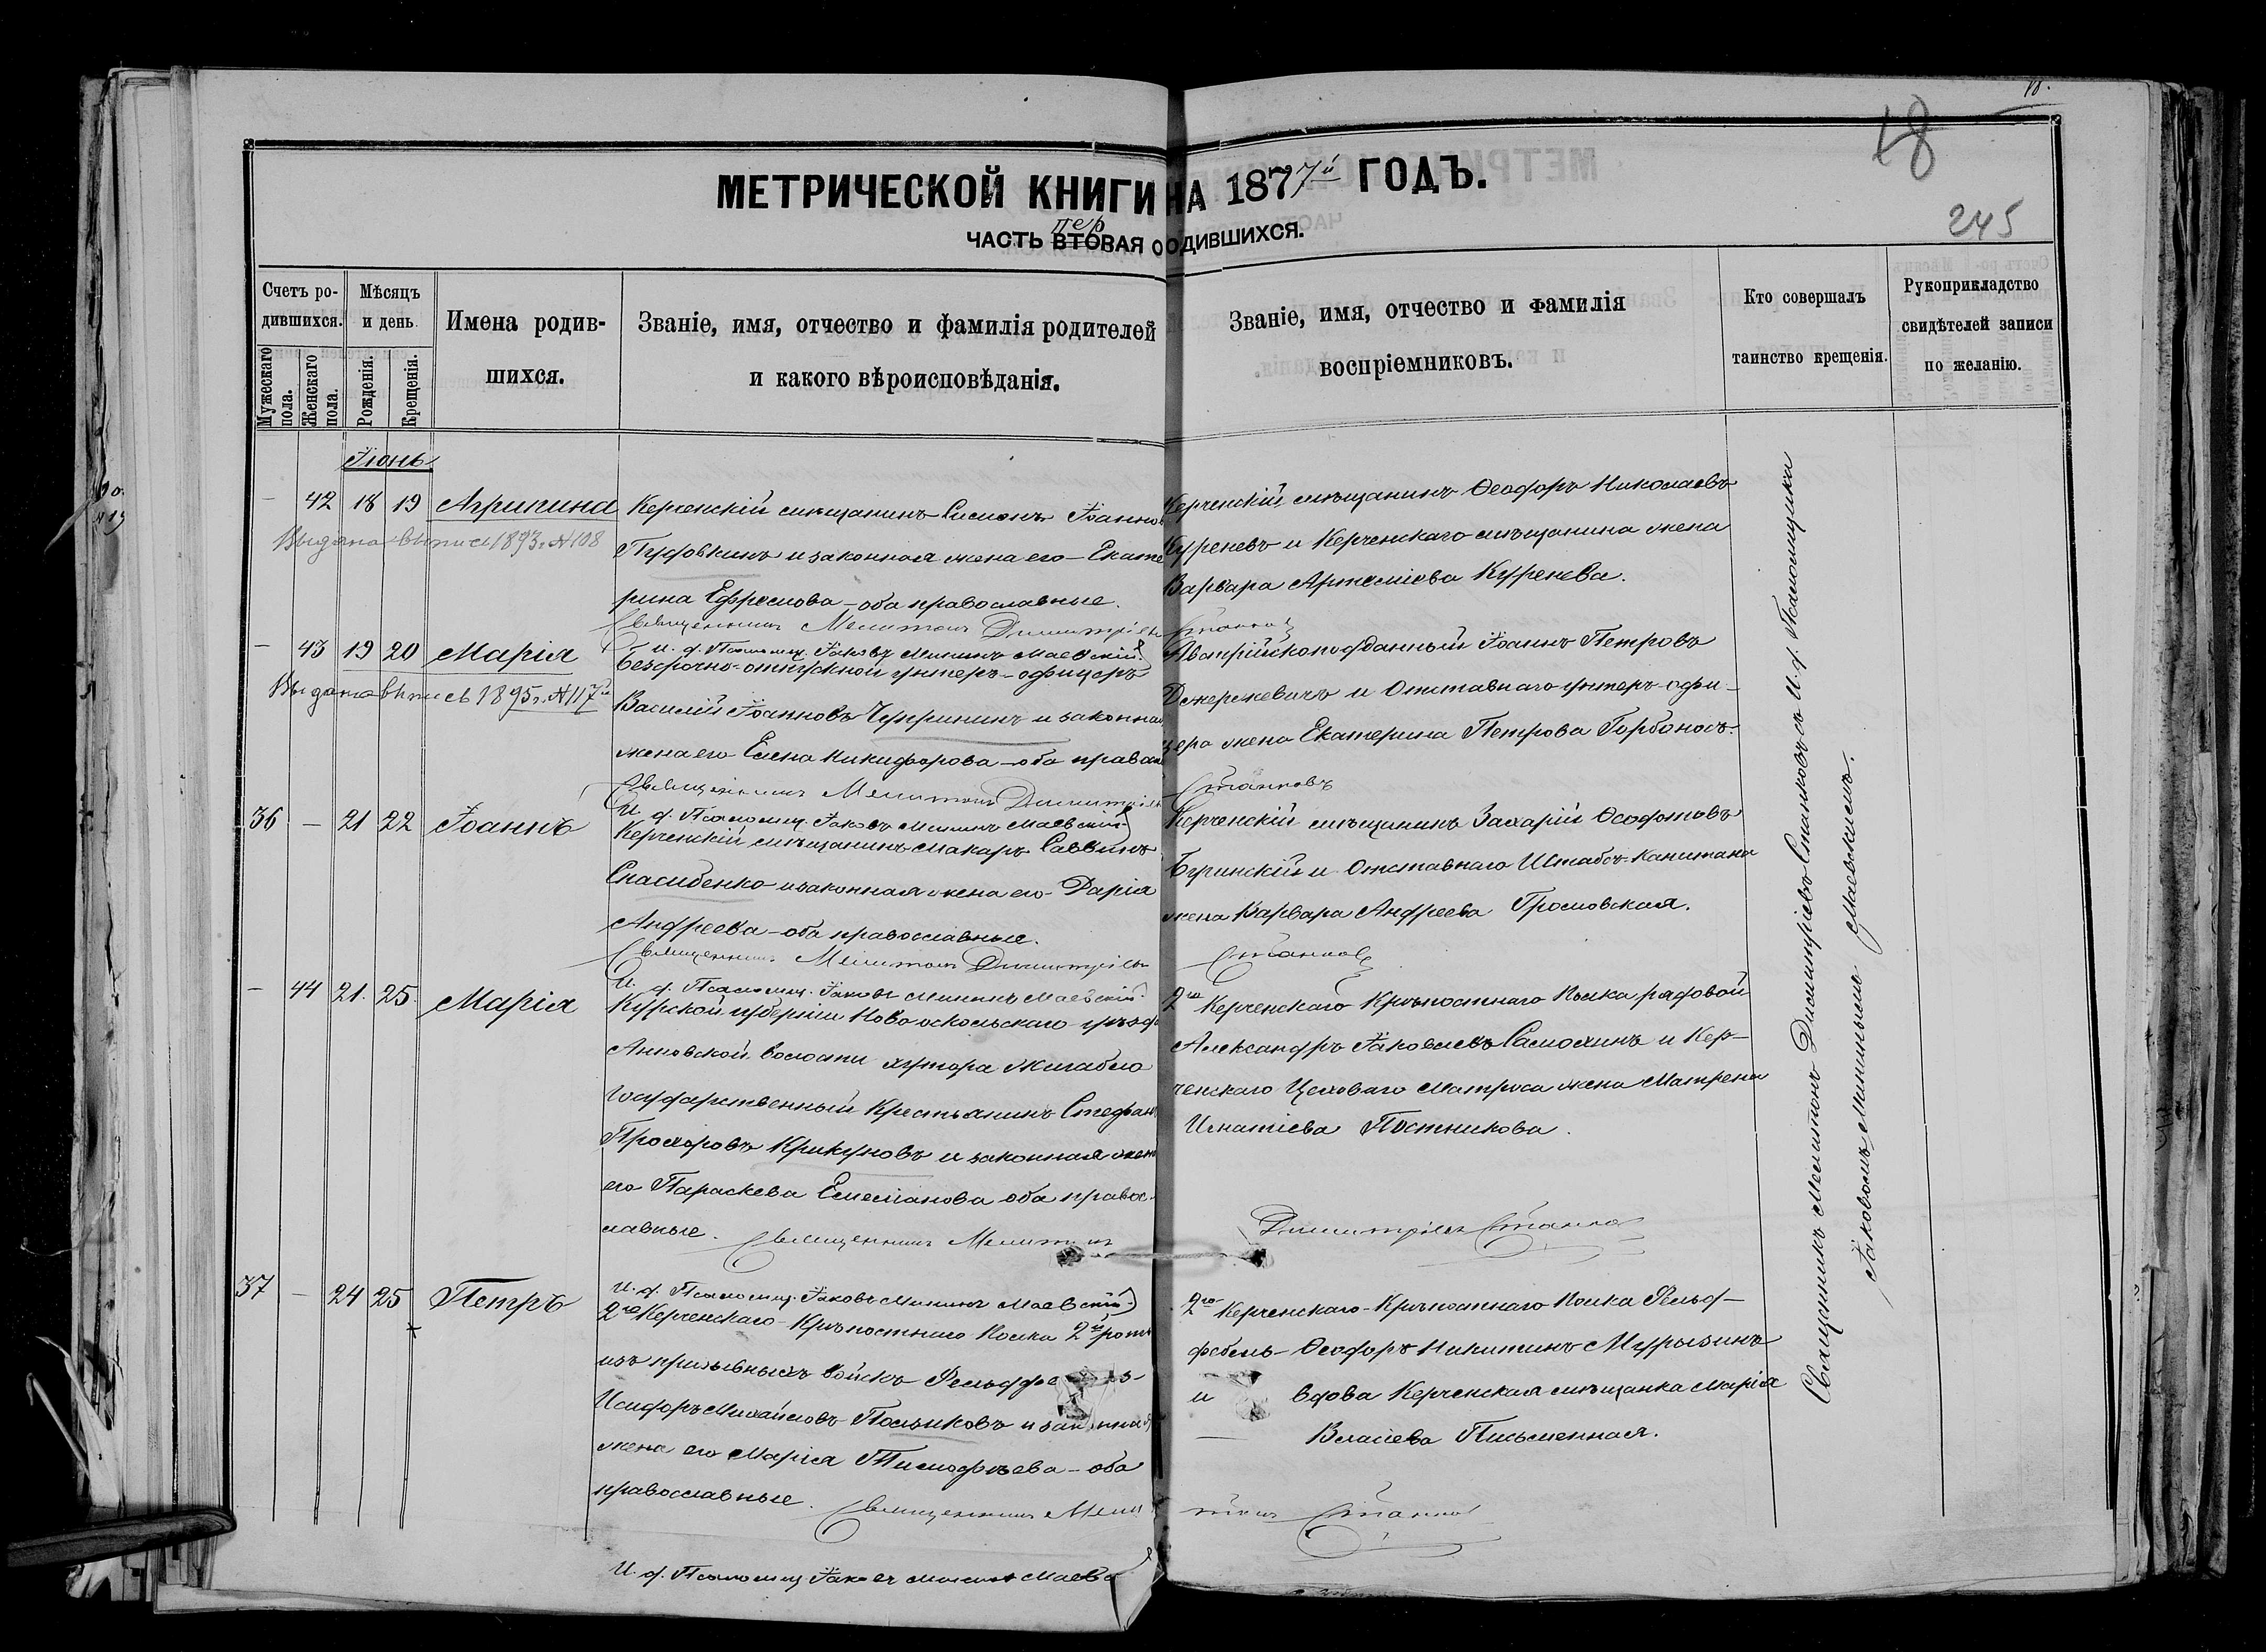 18
245
МЕТРИЧЕСКОЙ КНИГИ НА 1877й ГОДЪ.
пер
ЧАСТЬ ВТОРАЯ О РОДИВШИХСЯ.
Счетъ родившихся.
Мужескаго пола.
Женскаго пола.
Мѣсяцъ и день
Рожденія.
Крещенія.
Имена родив-
шихся.
Званіе, имя, отчество и фамилія родителей
и какого вѣроисповѣданія.
Званіе, имя, отчество и фамилія
воспріемниковъ.
Кто совершалъ
таинство крещенія.
Рукоприкладство
свидѣтелей записи
по желанію.
Іюнь
— 42 18 19 Агрипина
Выдана выпись 1893 г. №108
Керченскій мѣщанинъ Симонъ Іоаннов
и законная жена его — Екате
рина Ефремова — оба православные.
Священникъ Мелитонъ Димитріевъ Станковъ
И. д. Псаломщ. Іаковъ Мининъ Маевскій
Керченскій мѣщанинъ Ѳеодоръ Николаевъ
Куреневъ и Керченскаго мѣщанина жена
Варвара Артеміева Куренева.
— 43 19 20 Марія
Выдана выпись 1895 г. №117й
Безсрочно-отпускной унтеръ-офицеръ
Василій Іоанновъ Чупринъ и законная
жена его Елена Никифорова — оба правосл
Священникъ Мелитонъ Димитріевъ Станковъ
И. д. Псаломщ. Іаковъ Мининъ Маевскій
Австрійскоподданный Іоаннъ Петровъ
и Отставнаго унтеръ-офи-
цера жена Екатерина Петрова Горбоносъ.
36 — 21 22 Іоаннъ
Керченскій мѣщанинъ Макаръ Саввинъ
Спасибенко и законная жена его Дарія
Андреева — оба православные.
Священникъ Мелитонъ Димитріевъ Станковъ
И. д. Псаломщ. Іаковъ Мининъ Маевскій
Керченскій мѣщанинъ Захарій
и Отставнаго Штабсъ-Капитана
жена Варвара Андреева Громовская.
— 44 21. 25. Марія
Курской губерніи Новооскольскаго уѣзда
Анновской волости хутора
Государственный Крестьянинъ Стефанъ
Прохоровъ Крикуновъ и законная жена
его Параскева Емеліанова оба правос-
лавные. Священникъ Мелитонъ Димитріевъ Станковъ
И. д. Псаломщ. Іаковъ Мининъ Маевскій
2го Керченскаго Крѣпостнаго Полка рядовой
Александръ Іаковлевъ Самохинъ и Кер-
ченскаго Цеховаго Матроса жена Матрена
Игнатіева Постникова.
37 — 24 25 Петръ
2го Керченскаго Крѣпостнаго Полка 2й роты
изъ призывныхъ войскъ
Исидоръ Михайловъ Поляковъ и законная
жена его Марія Тимофѣева — оба
православные. Священникъ Мелитонъ Станковъ
И. д. Псаломщ Іаковъ Мининъ Маевс
2го Керченскаго Крѣпостнаго Полка Фельд-
фебель Ѳеодоръ Никитинъ Мурызинъ
и вдова Керченская мѣщанка Марія
Власіева Письменная.
Священникъ Мелитонъ Димитріевъ Станковъ съ И. д. Псаломщика
Іаковомъ Мининымъ Маевскимъ.